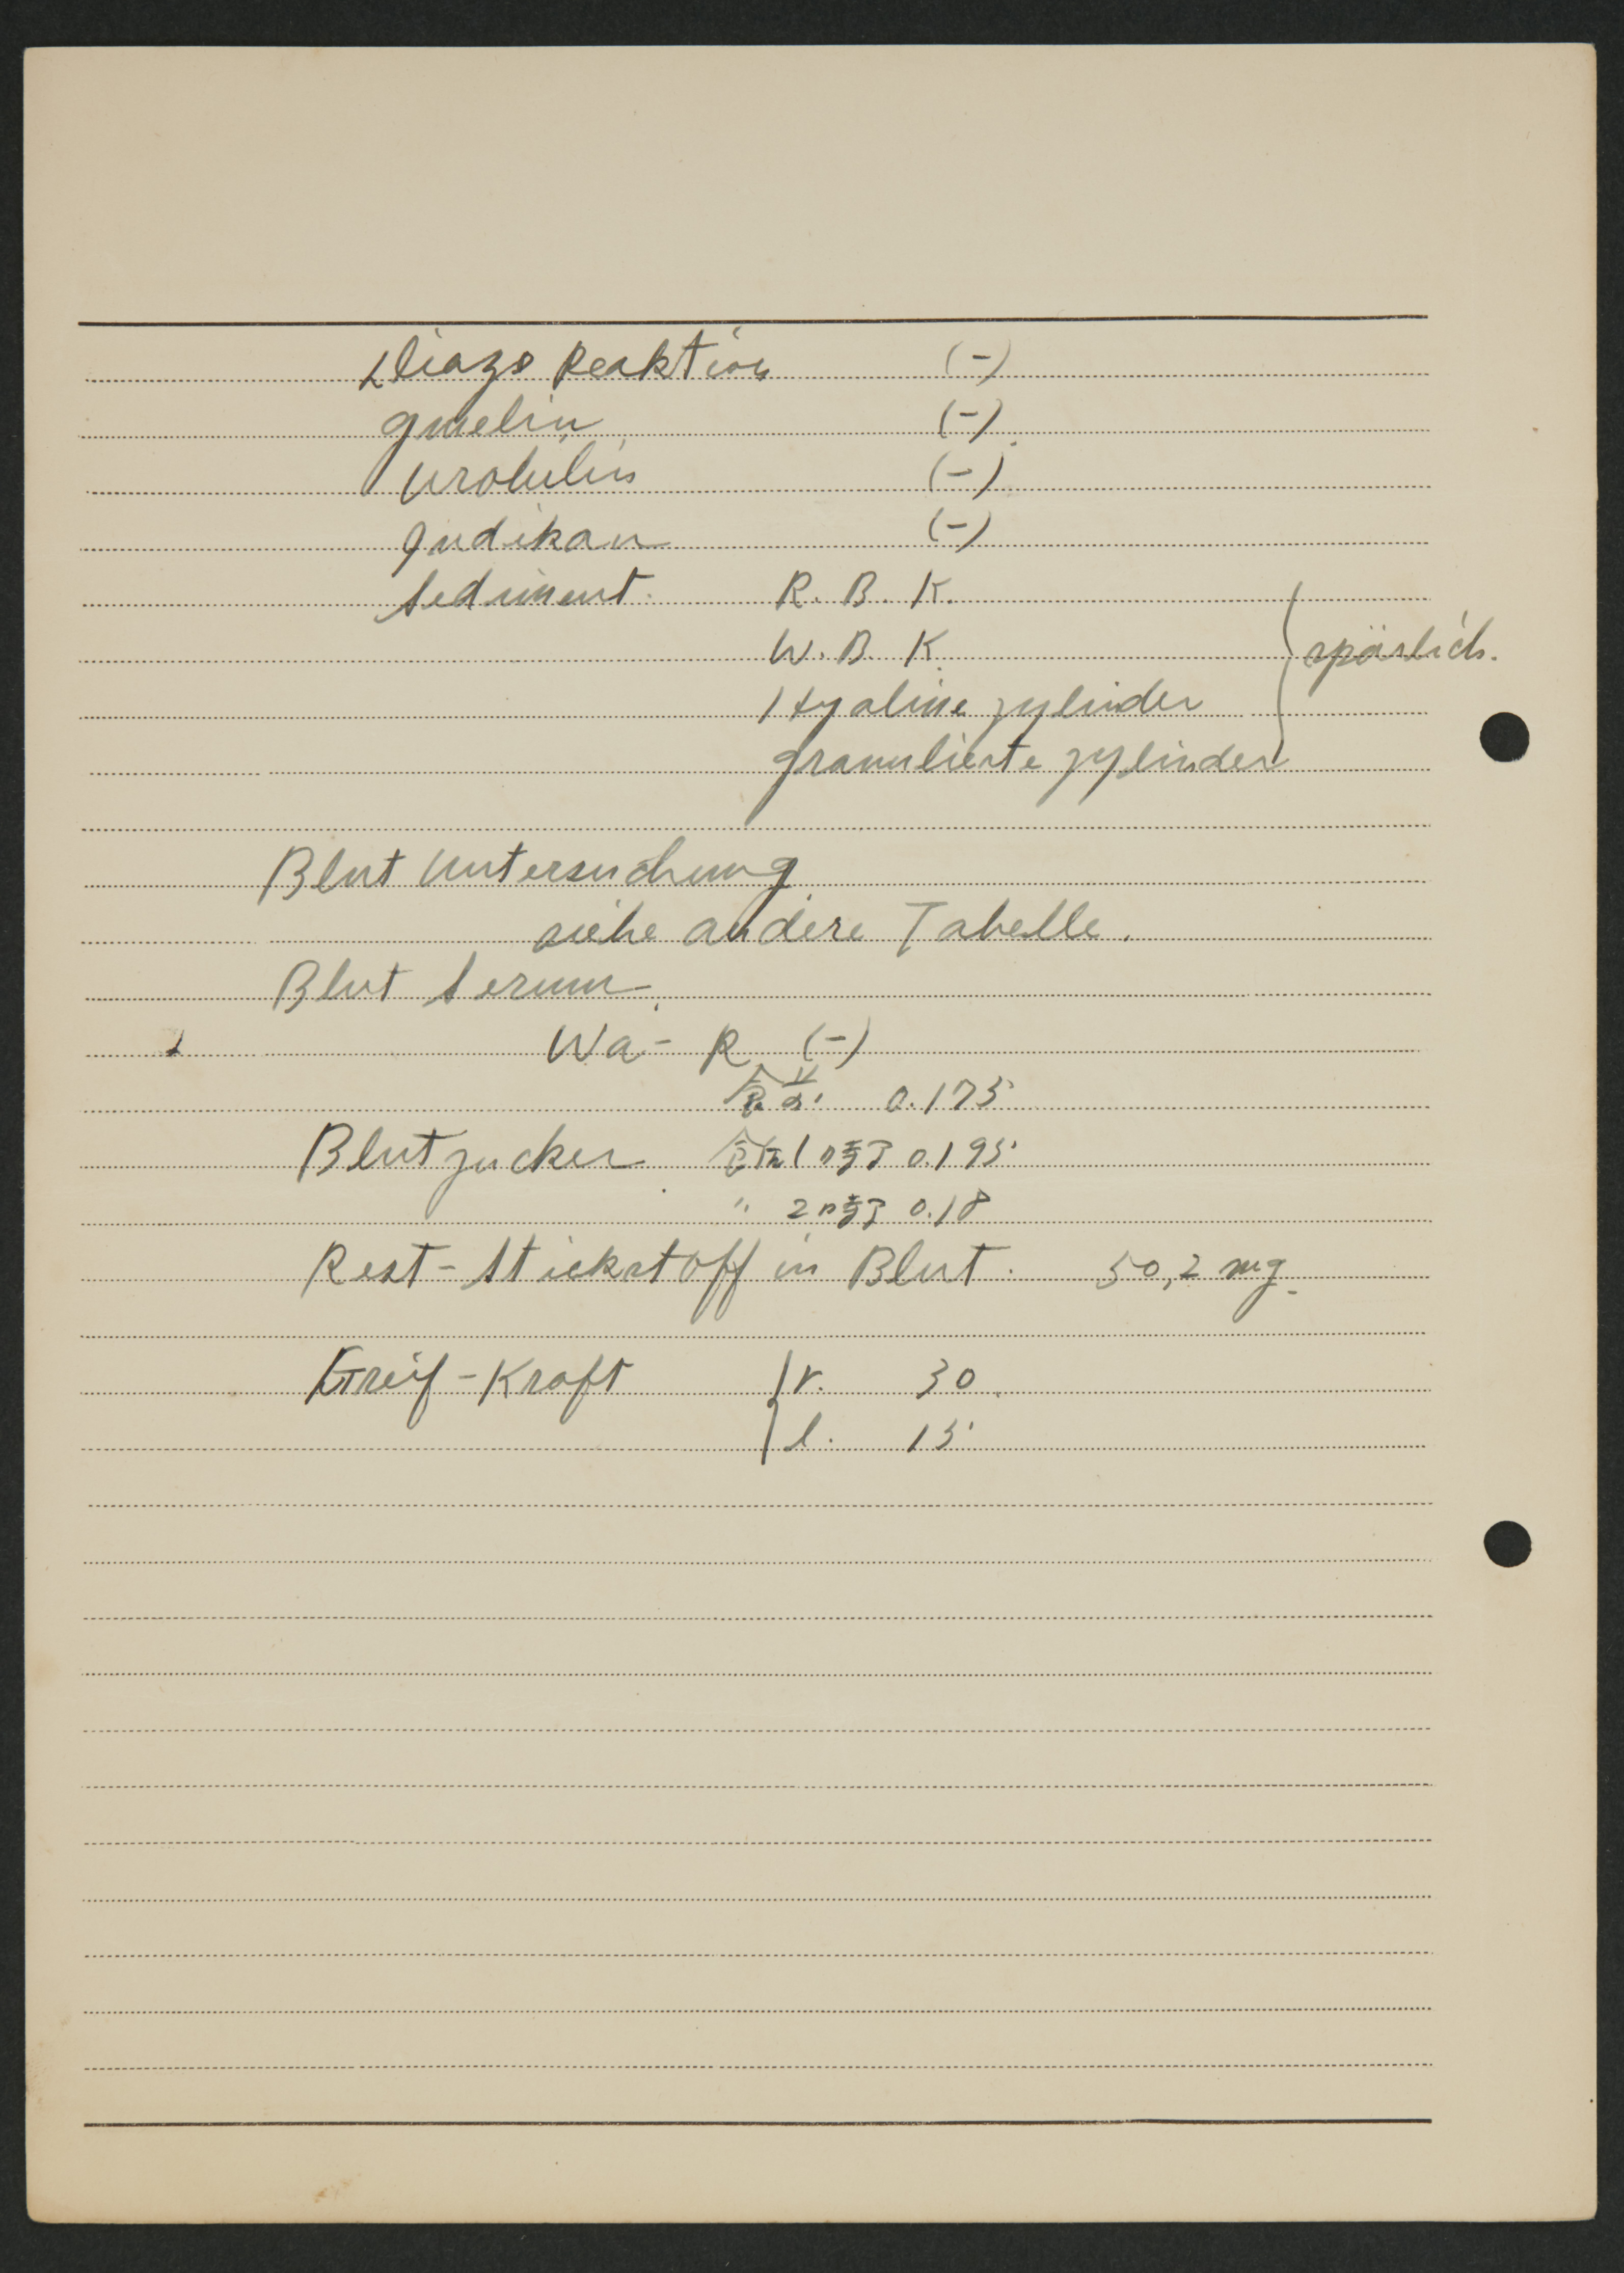 Diazo Reaktion (-)
Gmelin (-)
Urobilin (-)
Indikan (-)
Sediment. R. B. K.
W. B. K.
Hyaline zylinder
granulierte zylinder
spärlich.
Blut Untersuchung
siehe andere Tabelle.
Blut Serum
Wa - R (-)
食前 0.175
Blutzucker 食後 1時間 0.195
〃 2時間 0.18
Rest-Stickstoff in Blut. 50,2 mg
Greif-Kraft r. 30
l. 15